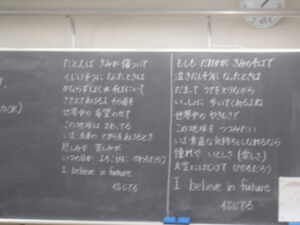 たとえば きみが 傷ついて
くじけそうに なったときは
かならずぼくが そばにいて
ささえてあげるよ その肩を
世界中の 希望のせて
この地球は まわってる
いま未来の とびらをあけるとき
悲しみや 苦しみが
いつの日か よろこびに かわるだろう
I believe in future
信じてる
もしも だれかが きみのそばで
泣きだしそうに なったときは
だまって うでをとりながら
いっしょに 歩いてくれるよね
世界中の やさしさで
この地球を つつみたい
いま素直な 気持ちになれるなら
憧れや いとしさ (愛しさ)
大空に はじけて ひかるだろう
I believe in future
信じてる